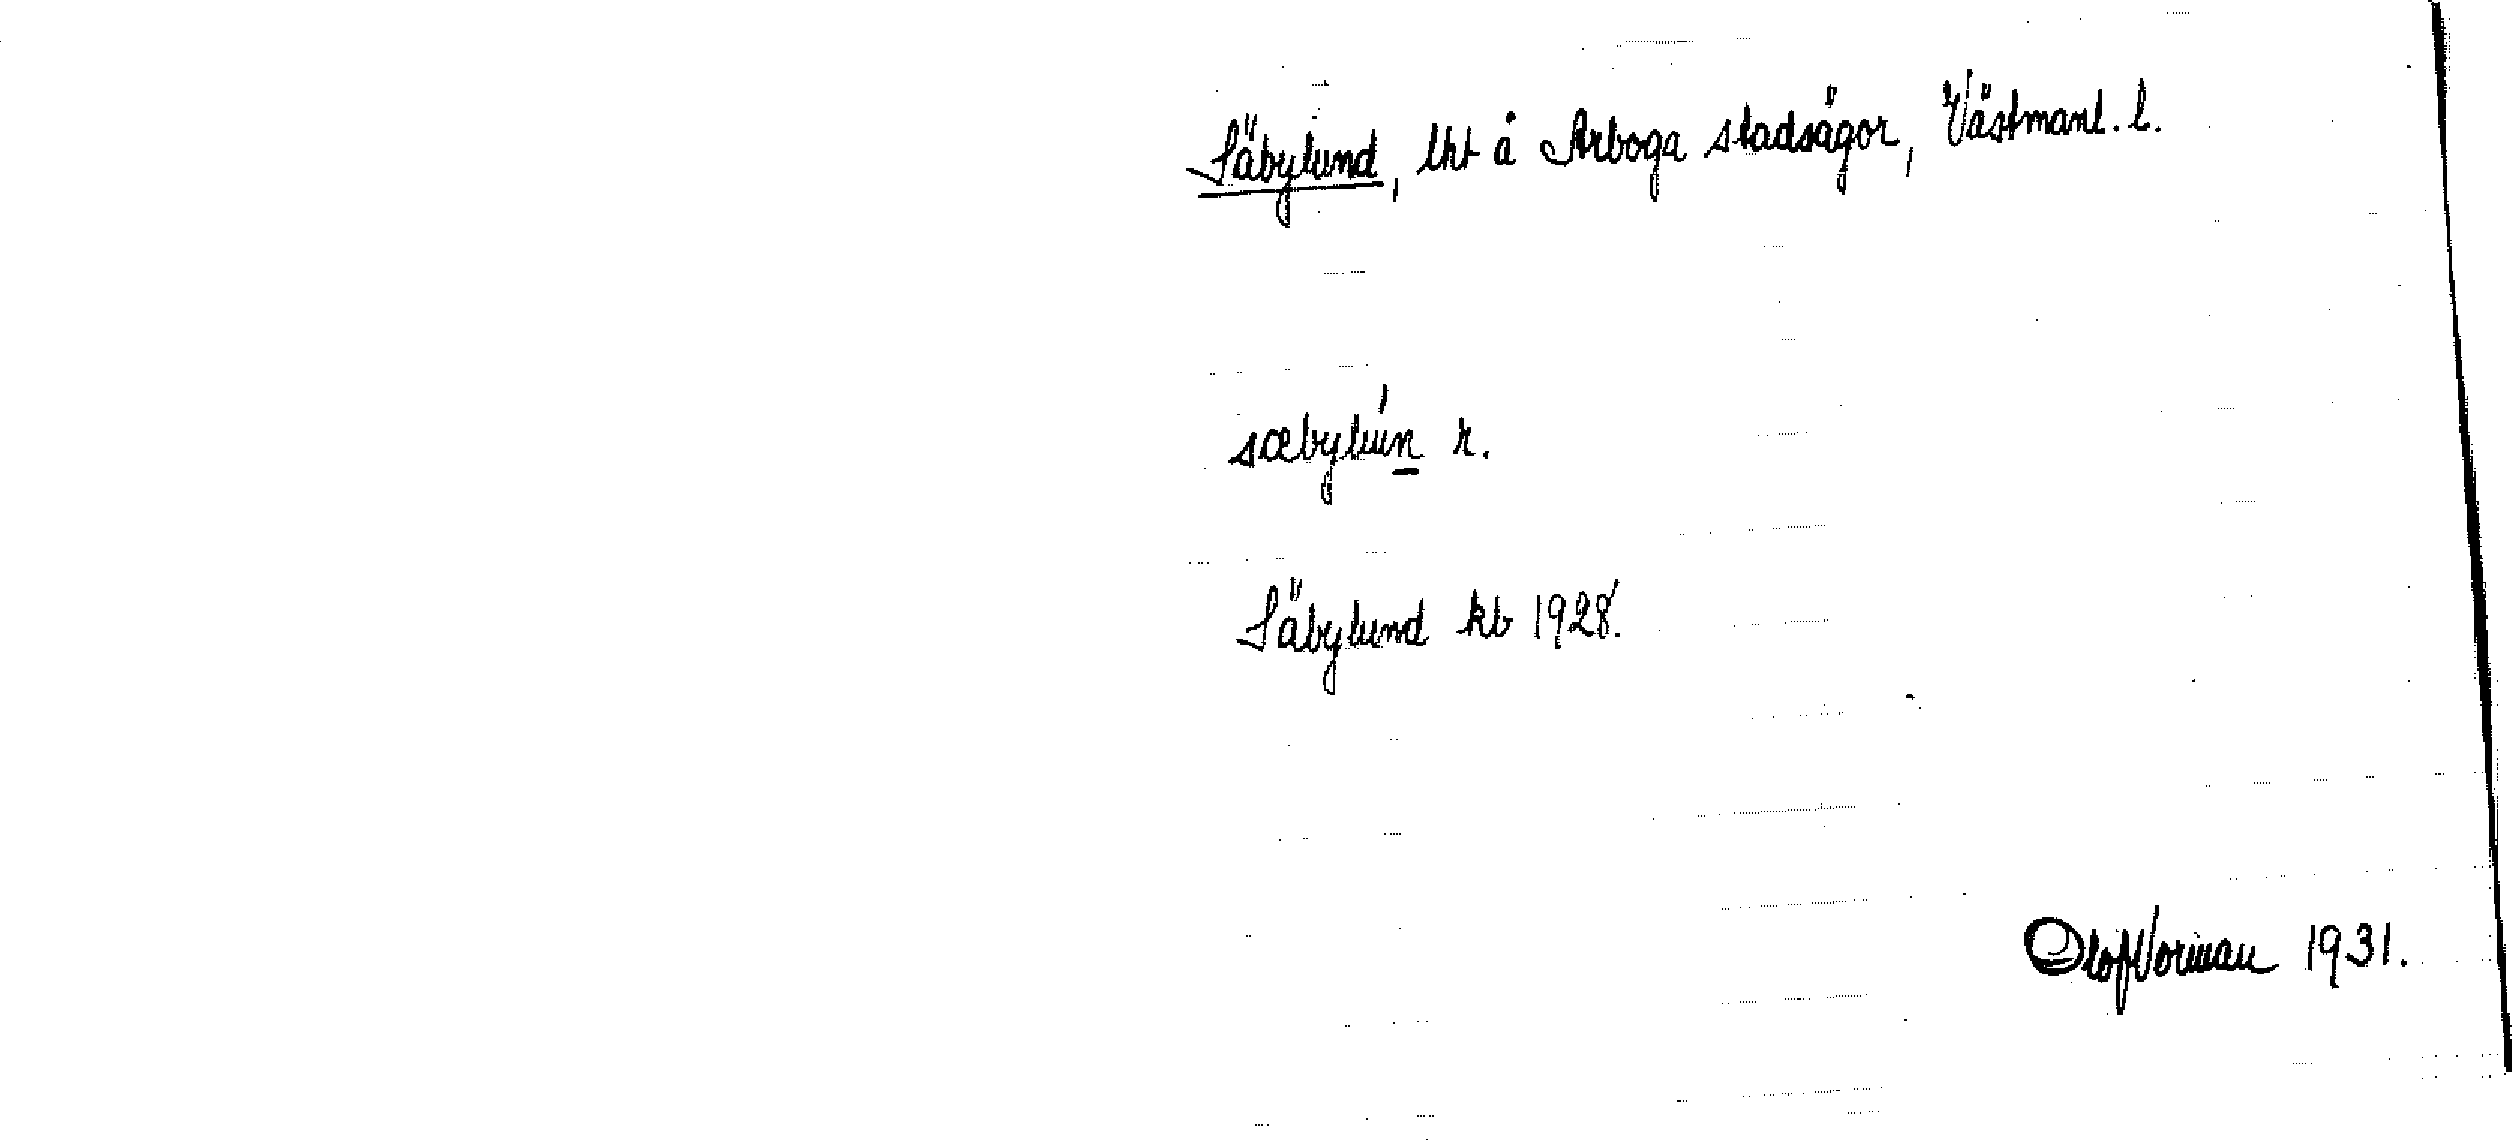 Säbylund, lht å Arboga stadsägor, Västmanl. l.
sæbylún r.
Säbylund kb 1928.
Olof Norman 1931.